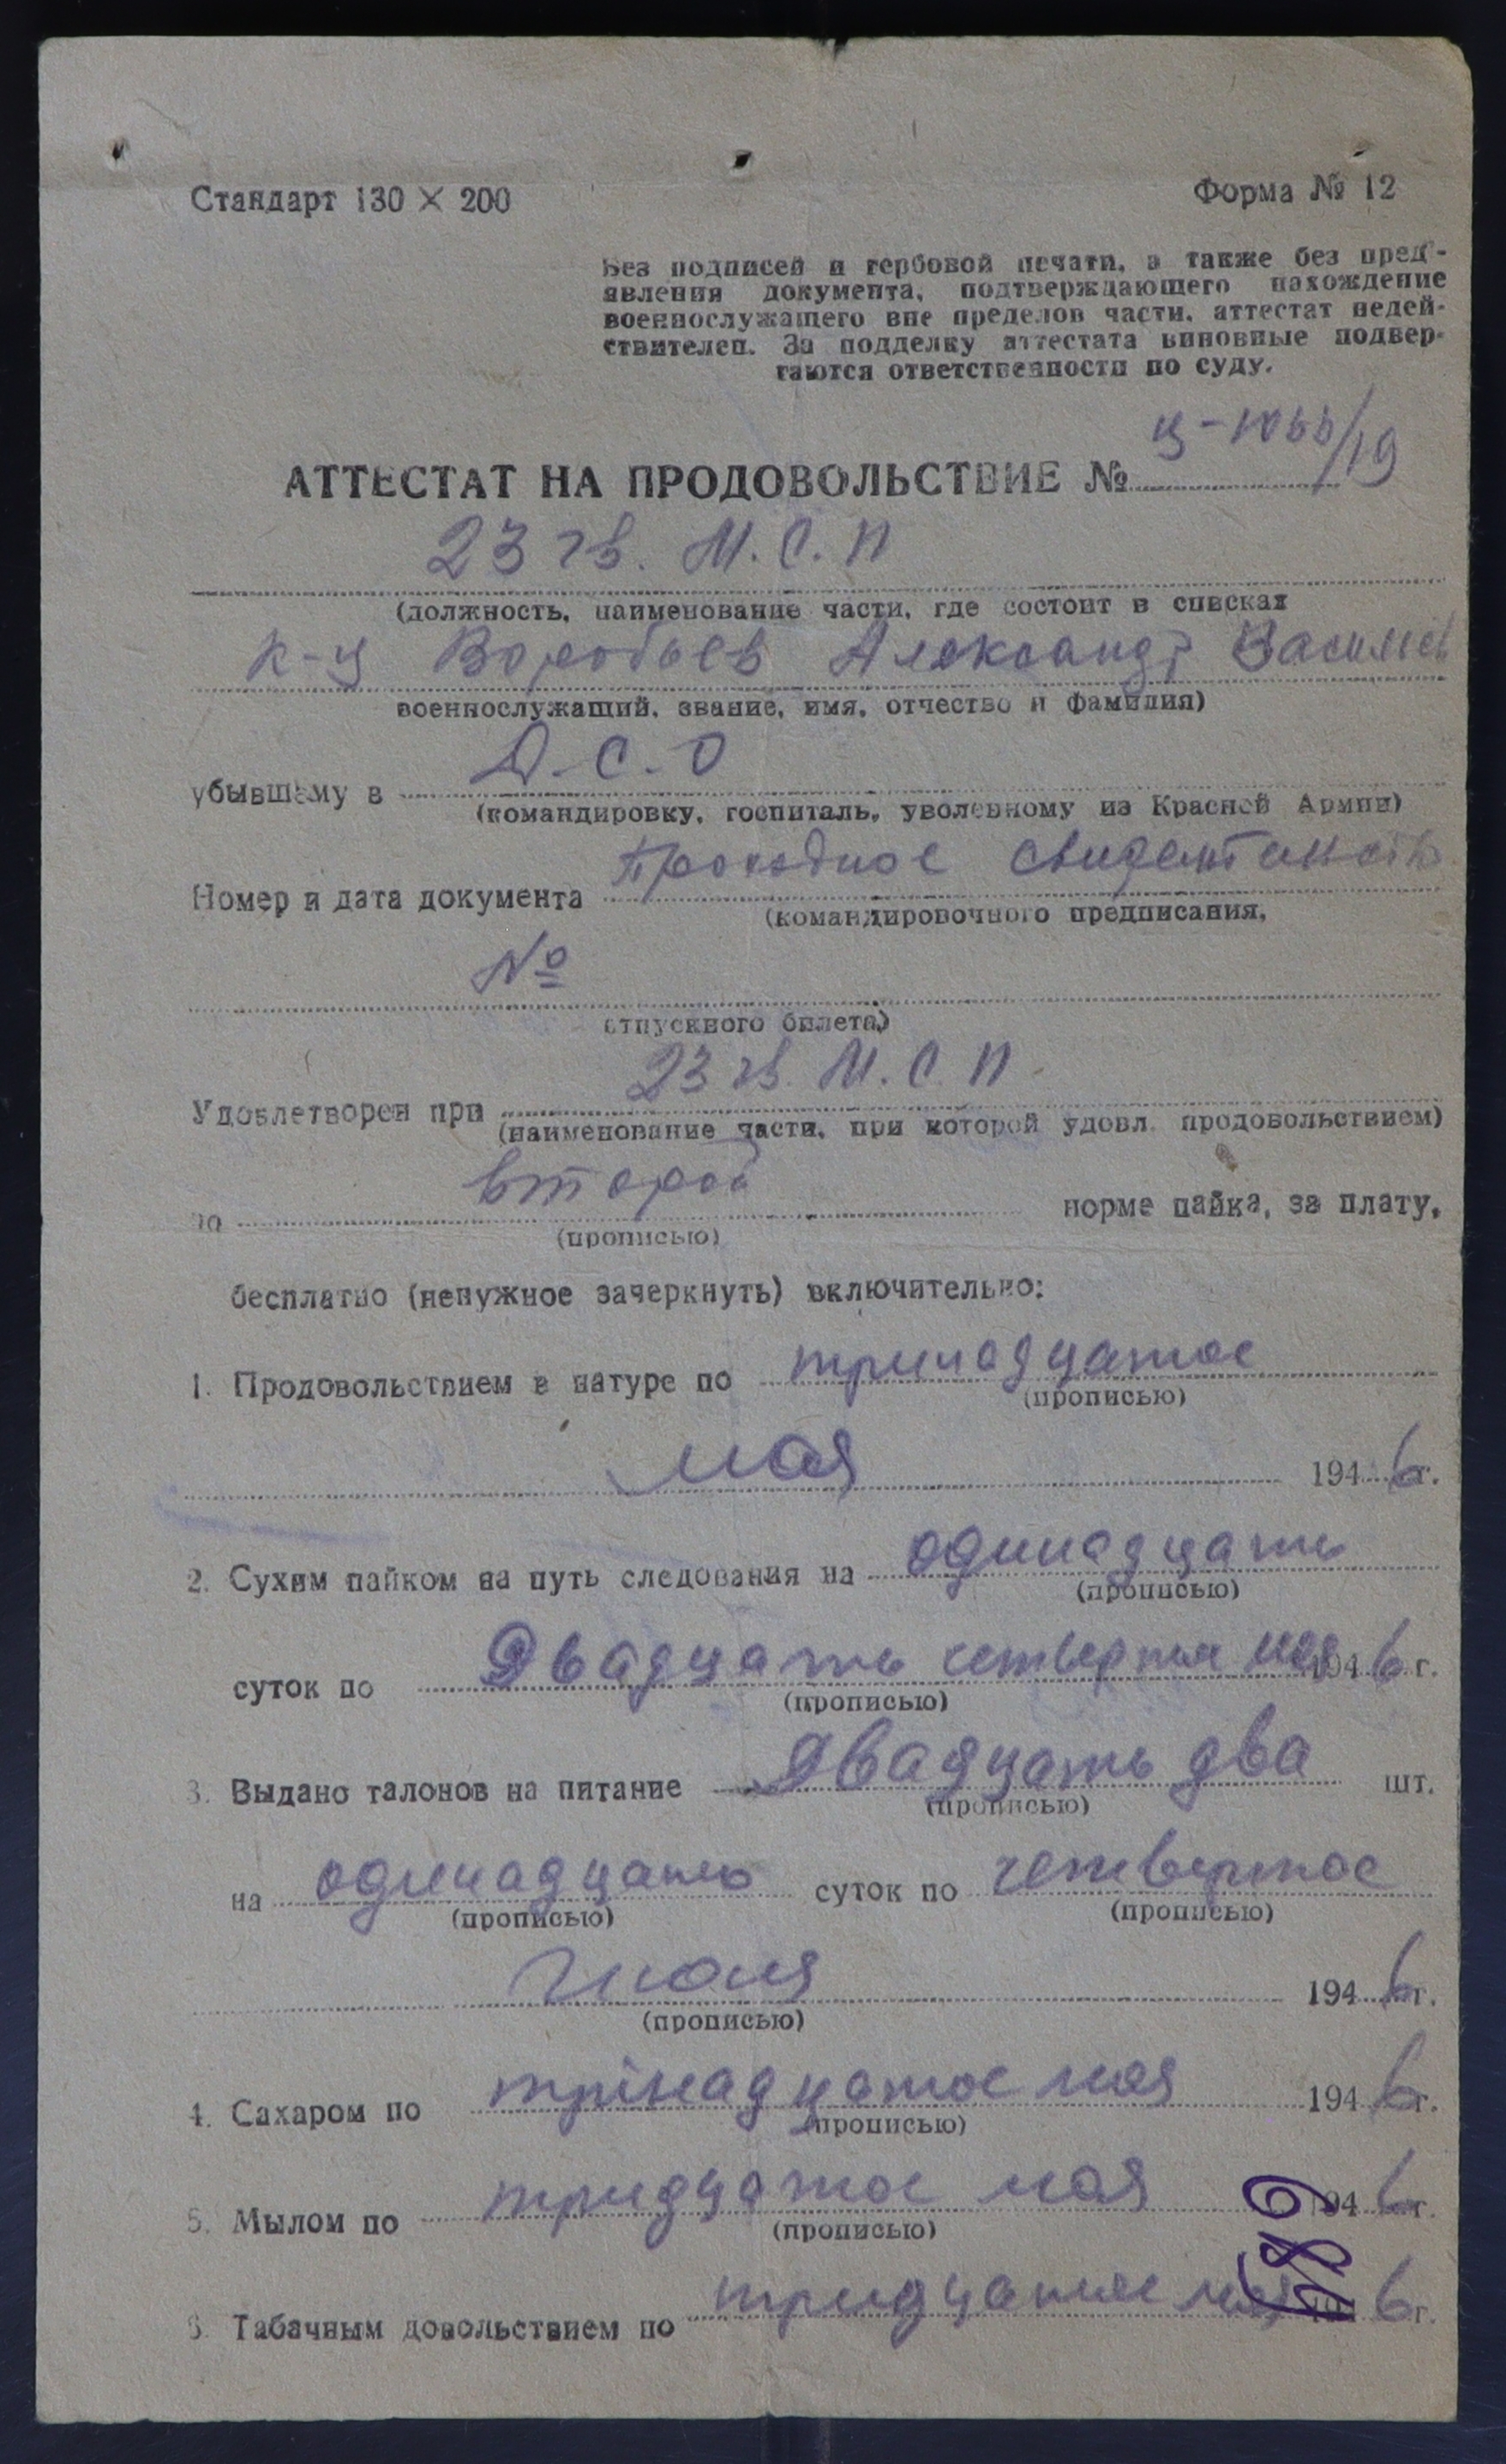 Стандарт 130 × 200
Форма № 12
Без подписей и гербовой печати, а также без пред'-
явления документа, подтверждающего нахождение
военнослужащего вне пределов части, аттестат недей-
ствителен. За подделку аттестата виновные подвер-
гаются ответственности по суду.
АТТЕСТАТ НА ПРОДОВОЛЬСТВИЕ № /19
23 гв. М.С.П
(должность, наименование части, где состоит в списках
к-у Воробьев Александр Василев
военнослужащий, звание, имя, отчество и фамилия)
убывшему в Д.С.О
(командировку, госпиталь, уволенному из Красной Армии)
Номер и дата документа Проходное
(командировочного предписания,
№
отпускного билета)
23 гв. М.С.П.
Удовлетворен при
(наименование части, при которой удовл. продовольствием)
по второй норме пайка, за плату,
(прописью)
бесплатно (ненужное зачеркнуть) включительно:
1. Продовольствием в натуре по тринадцатое
(прописью)
мая 1946 г.
2. Сухим пайком на путь следования на одинадцать
(прописью)
суток по Двадцать четвертое мая 1946 г.
(прописью)
3. Выдано талонов на питание Двадцать два шт.
(прописью)
на одинадцать суток по четвертое
(прописью) (прописью)
Июня 1946 г.
(прописью)
4. Сахаром по тринадцатое мая 1946 г.
(прописью)
5. Мылом по тридцатое мая 1946 г.
(прописью)
6. Табачным довольствием по тридцатое мая 6 г.